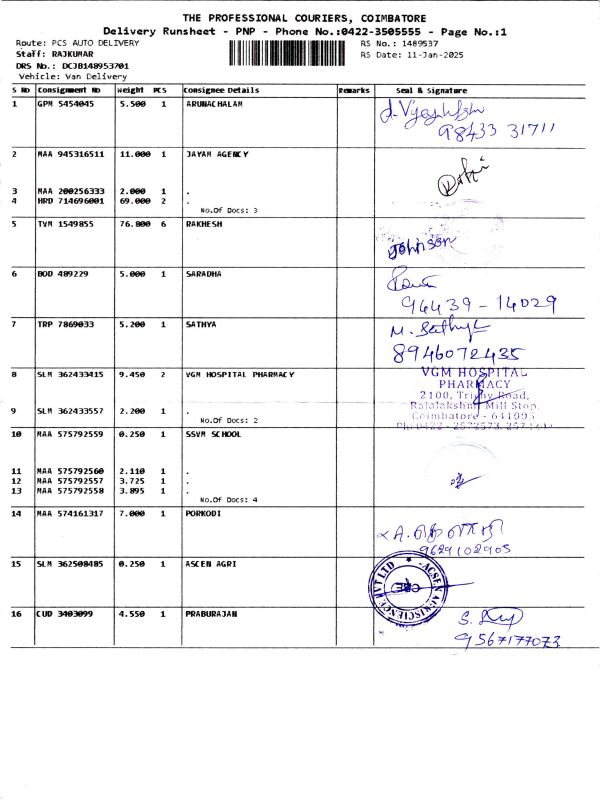 THE PROFESSIONAL COURIERS, COIMBATORE
Delivery Runsheet - PNP - Phone No.:0422-3505555 - Page No.:1
Route: PCS AUTO DELIVERY RS No.: 1489537
Staff: RAJKUMAR RS Date: 11-Jan-2025
DRS No.: DCJB148953701
Vehicle: Van Delivery
S No Consignment No Weight PCS Consignee Details Remarks Seal & Signature
1 GPM 5454045 5.500 1 ARUNACHALAM
98433 31711
2 MAA 945316511 11.000 1 JAYAM AGENCY
3 MAA 200256333 2.000 1 .
4 HRD 714696001 69.000 2 .
No.Of Docs: 3
5 TVM 1549855 76.800 6 RAKHESH
Johnson
6 BOD 489229 5.000 1 SARADHA
94439-14029
7 TRP 7869033 5.200 1 SATHYA
M. Sathya
8946072435
8 SLM 362433415 9.450 2 VGM HOSPITAL PHARMACY
VGM HOSPITAL
PHARMACY
2100, Trichy Road,
Rajalakshmi Mill Stop,
Coimbatore - 641005
9 SLM 362433557 2.200 1 .
No.Of Docs: 2
10 MAA 575792559 0.250 1 SSVM SCHOOL
11 MAA 575792560 2.110 1 .
12 MAA 575792557 3.725 1 .
13 MAA 575792558 3.895 1 .
No.Of Docs: 4
14 MAA 574161317 7.000 1 PORKODI
9629102905
15 SLM 362508485 0.250 1 ASCEN AGRI
ACSEN AGRISCIENCE PVT LTD
16 CUD 3403099 4.550 1 PRABURAJAN
9567177073